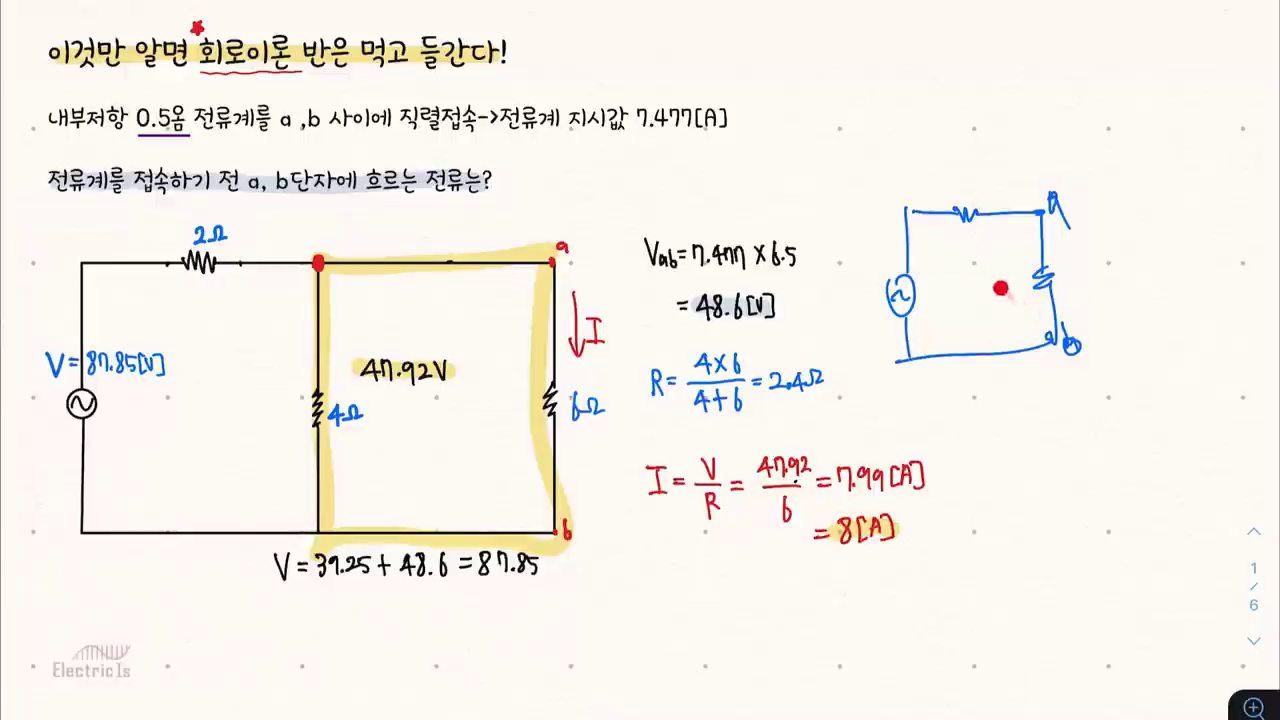 이것만 알면 회로이론 반은 먹고 들간다!
내부저항 0.5옴 전류계를 a ,b 사이에 직렬접속->전류계 지시값 7.477[A]
전류계를 접속하기 전 a, b단자에 흐르는 전류는?
2Ω
a
I
V=87.85[V]
47.92V
4Ω
6Ω
b
V=39.25+48.6=87.85
Vab=7.477×6.5
=48.6[V]
R=4×6/4+6=2.4Ω
I=V/R=47.92/6=7.99[A]
=8[A]
a
b
Electric Is
1
/
6